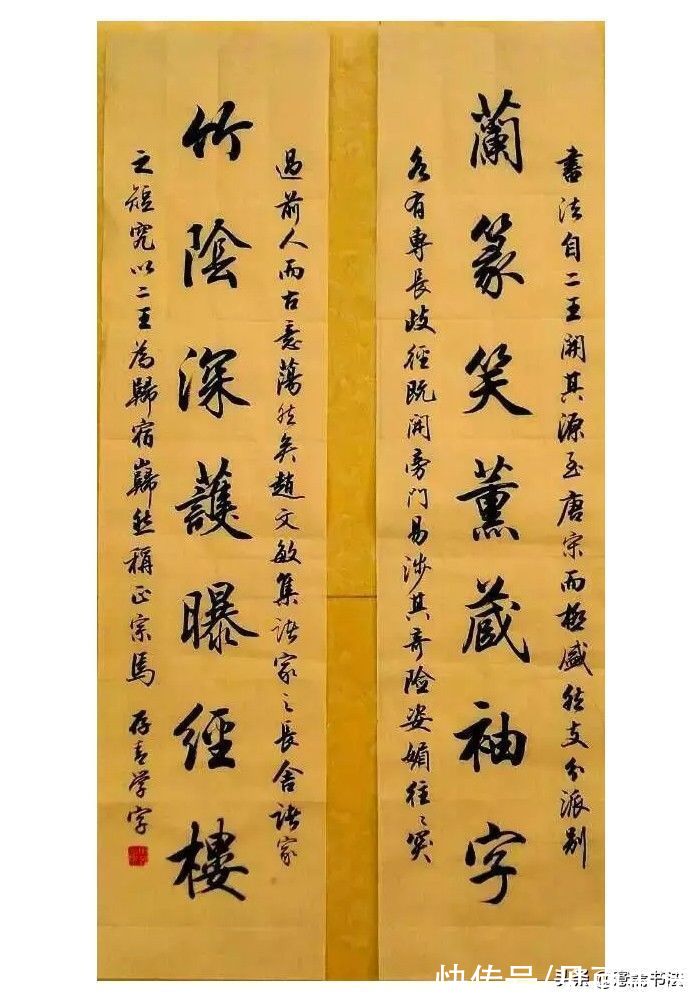 書法自二王開其源至唐宋而極盛然支分派別
蘭篆笑薰藏袖字
各有專長歧徑既開旁門易涉其奇險姿媚往々突
過前人而古意蕩然矣趙文敏集諸家之長舍諸家
竹陰深護曝經樓
之短究以二王為歸宿巋然稱正宗焉 存青学字
快传号/
头条 @ 书法